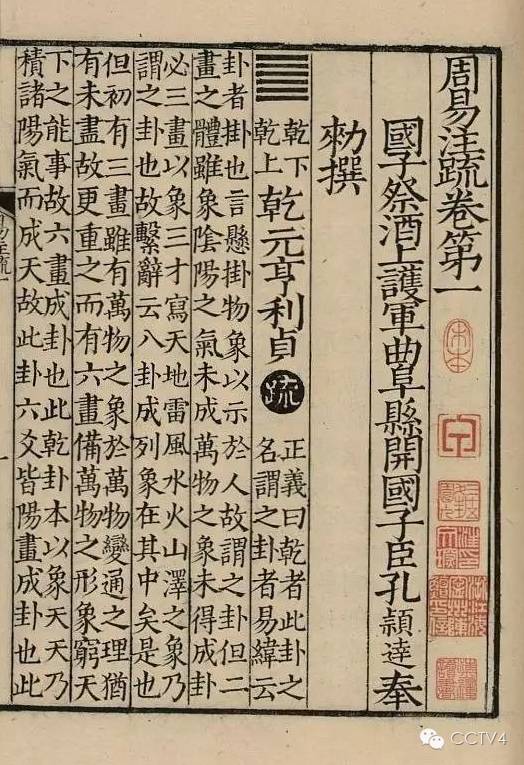 周易注疏卷第一
國子祭酒上護軍曲阜縣開國子臣孔穎達奉
勑撰
乾下
乾上
乾元亨利貞
疏
正義曰乾者此卦之
名謂之卦者易緯云
卦者掛也言懸掛物象以示於人故謂之卦但二
畫之體雖象陰陽之氣未成萬物之象未得成卦
必三畫以象三才寫天地雷風水火山澤之象乃
謂之卦也故繫辭云八卦成列象在其中矣是也
但初有三畫雖有萬物之象於萬物變通之理猶
有未盡故更重之而有六畫備萬物之形象窮天
下之能事故六畫成卦也此乾卦本以象天天乃
積諸陽氣而成天故此卦六爻皆陽畫成卦也此
易注疏一
一
宋本
CCTV4